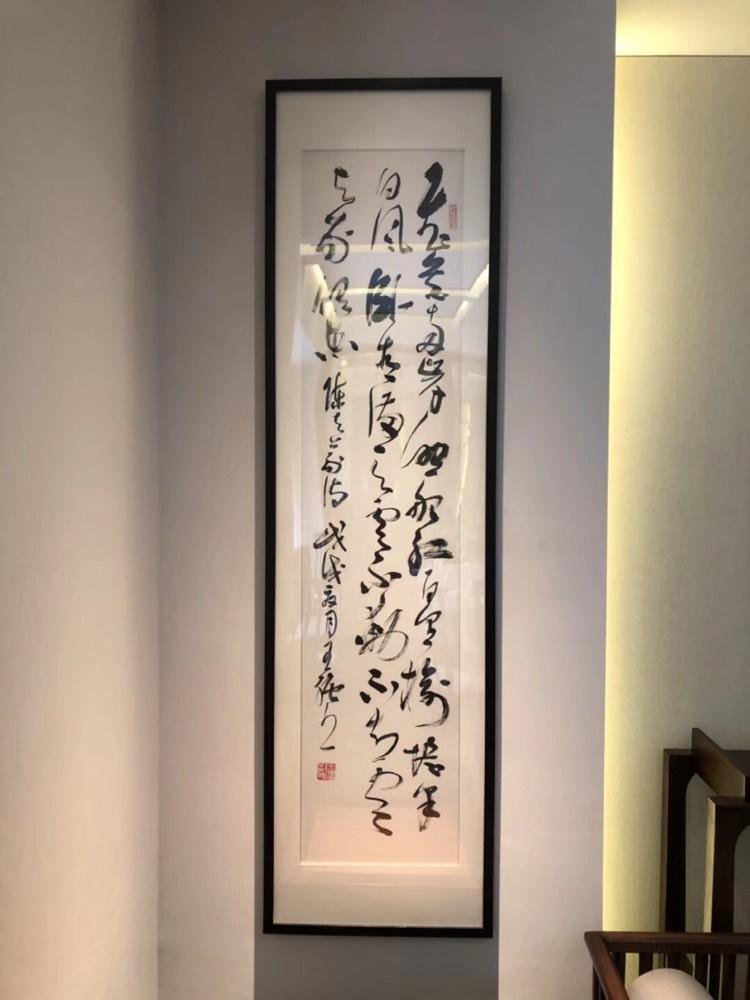 飞花两岸照船红百里榆堤半
日风卧看满天云不动不知云
与我俱东陈与义诗戊戌夏月王